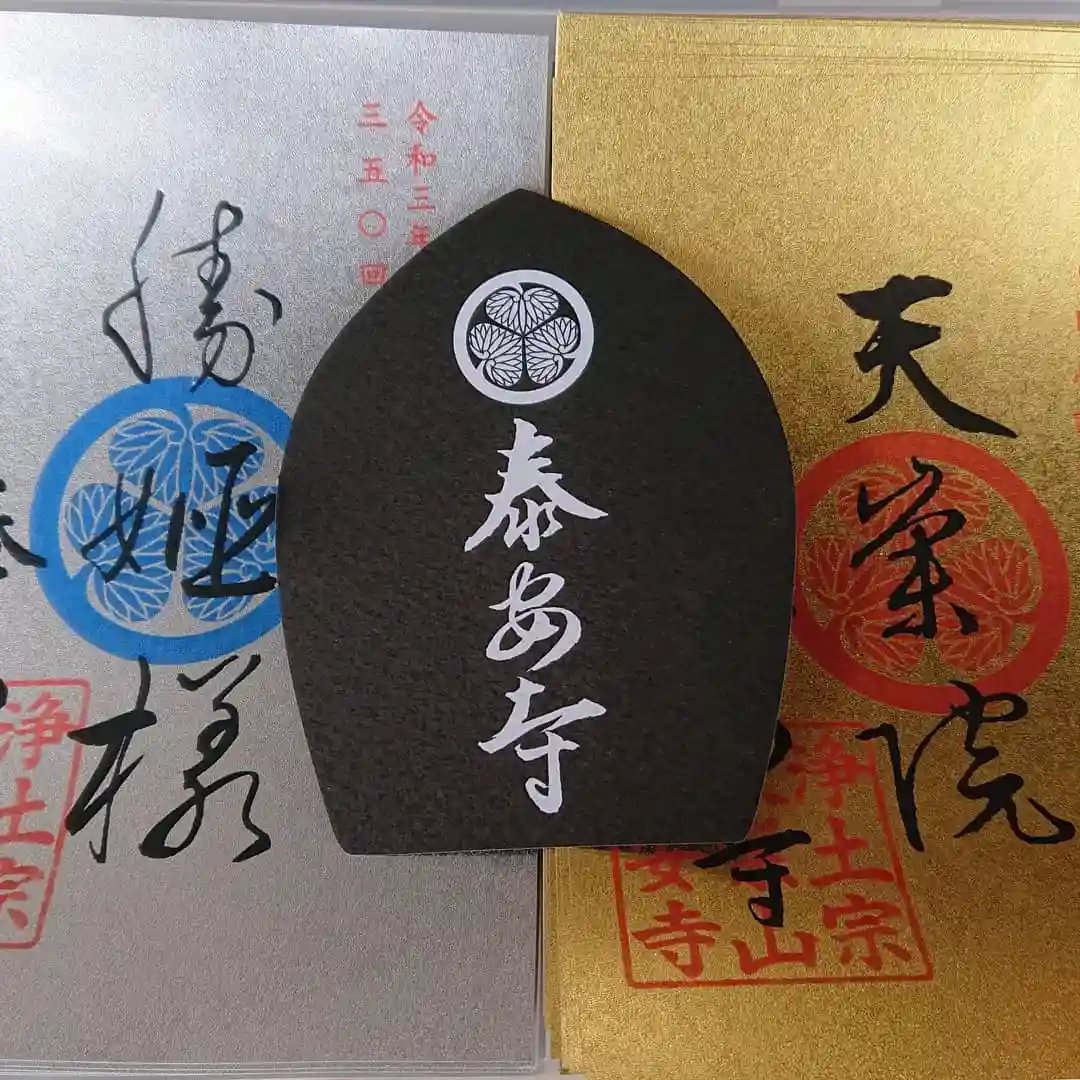 令和三年
三五〇回
勝姫様
浄土宗
泰安寺
天崇院
浄土宗
山
安寺
寺